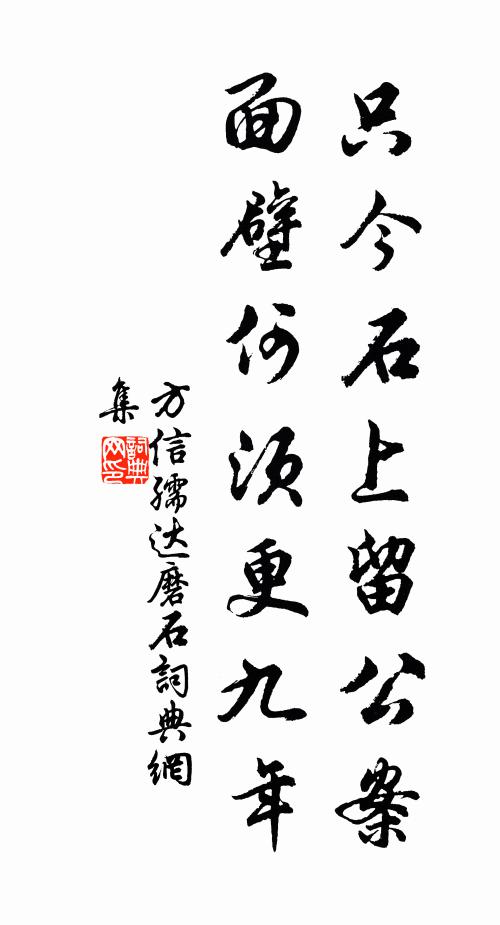 只今石上留公案
面壁何须更九年
方信孺达磨石詞典網
集
詞典
网印